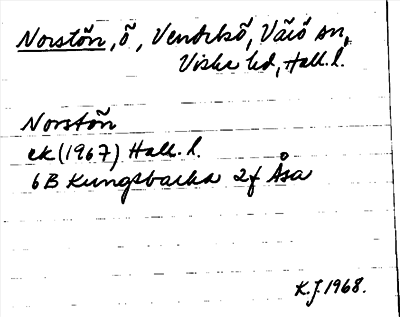 Norstön, ö, Vendelsö, Värö sn,
Viske hd, Hall. l.
Norstön
ek (1967) Hall. l.
6B Kungsbacka 2f Åsa
K.J. 1968.